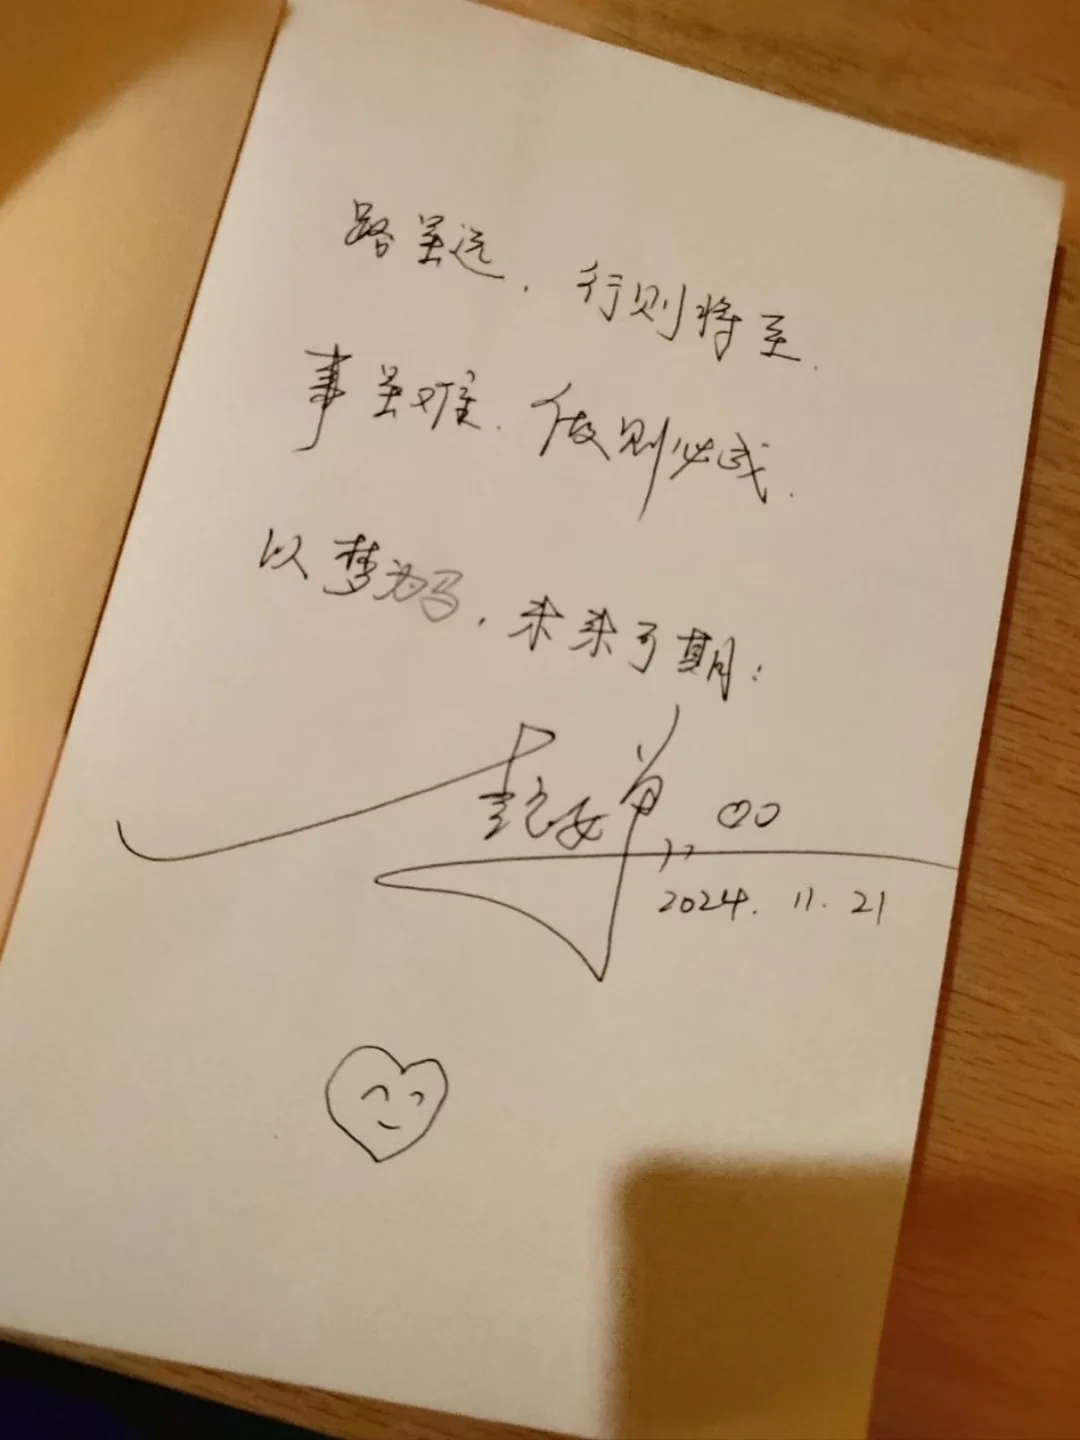 路虽远，行则将至.
事虽难.做则必成.
以梦为马，未来可期：
2024.11.21